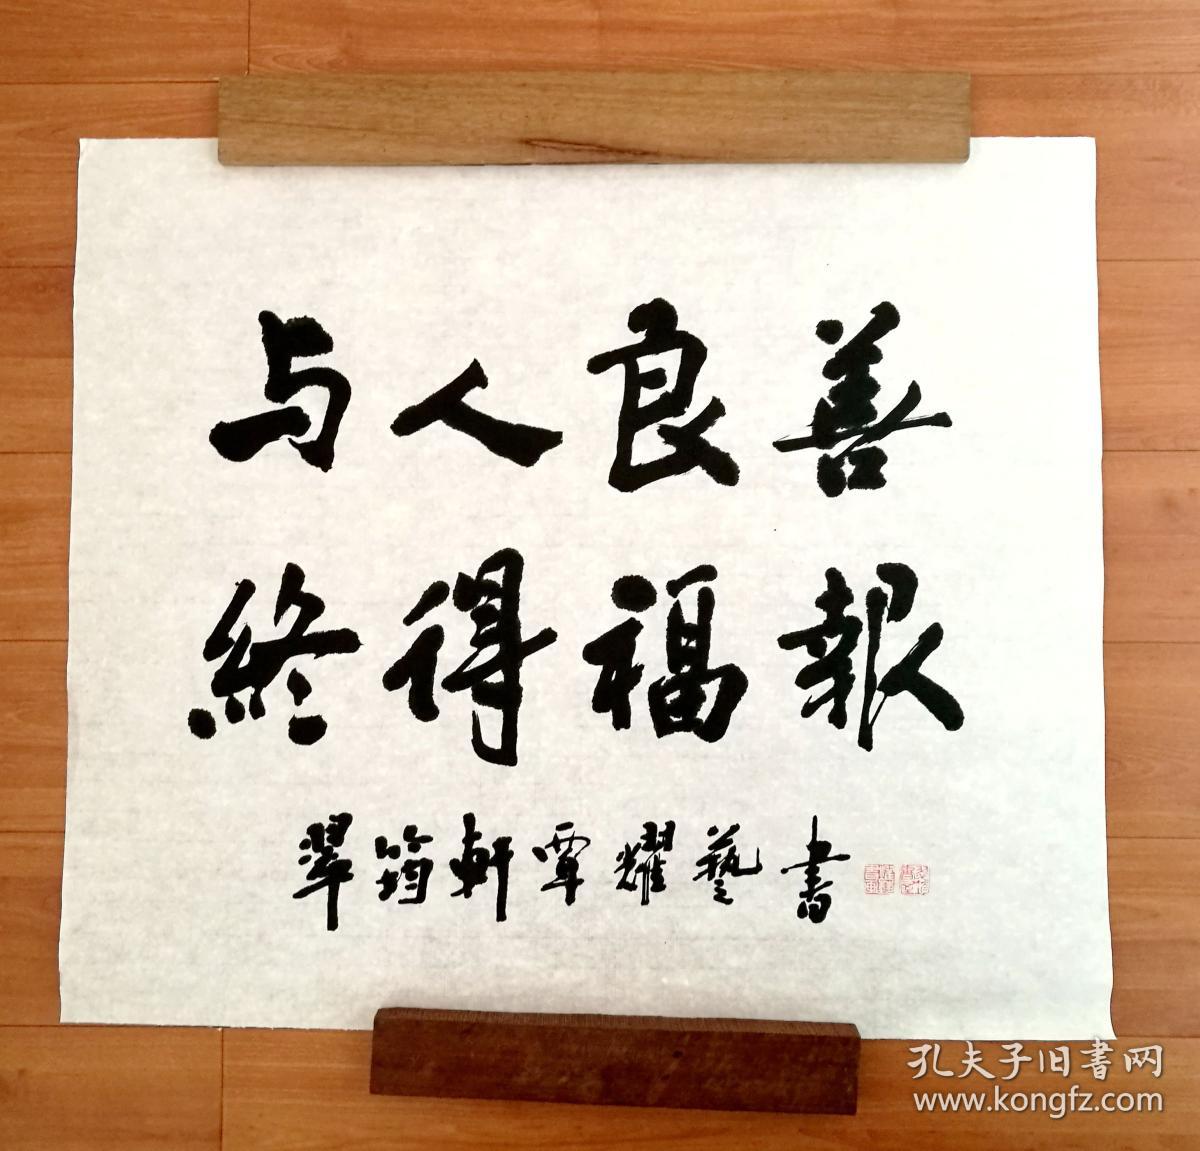 与人良善
終得福報
翠筠軒覃耀藝書
孔夫子旧書网
www.kongfz.com